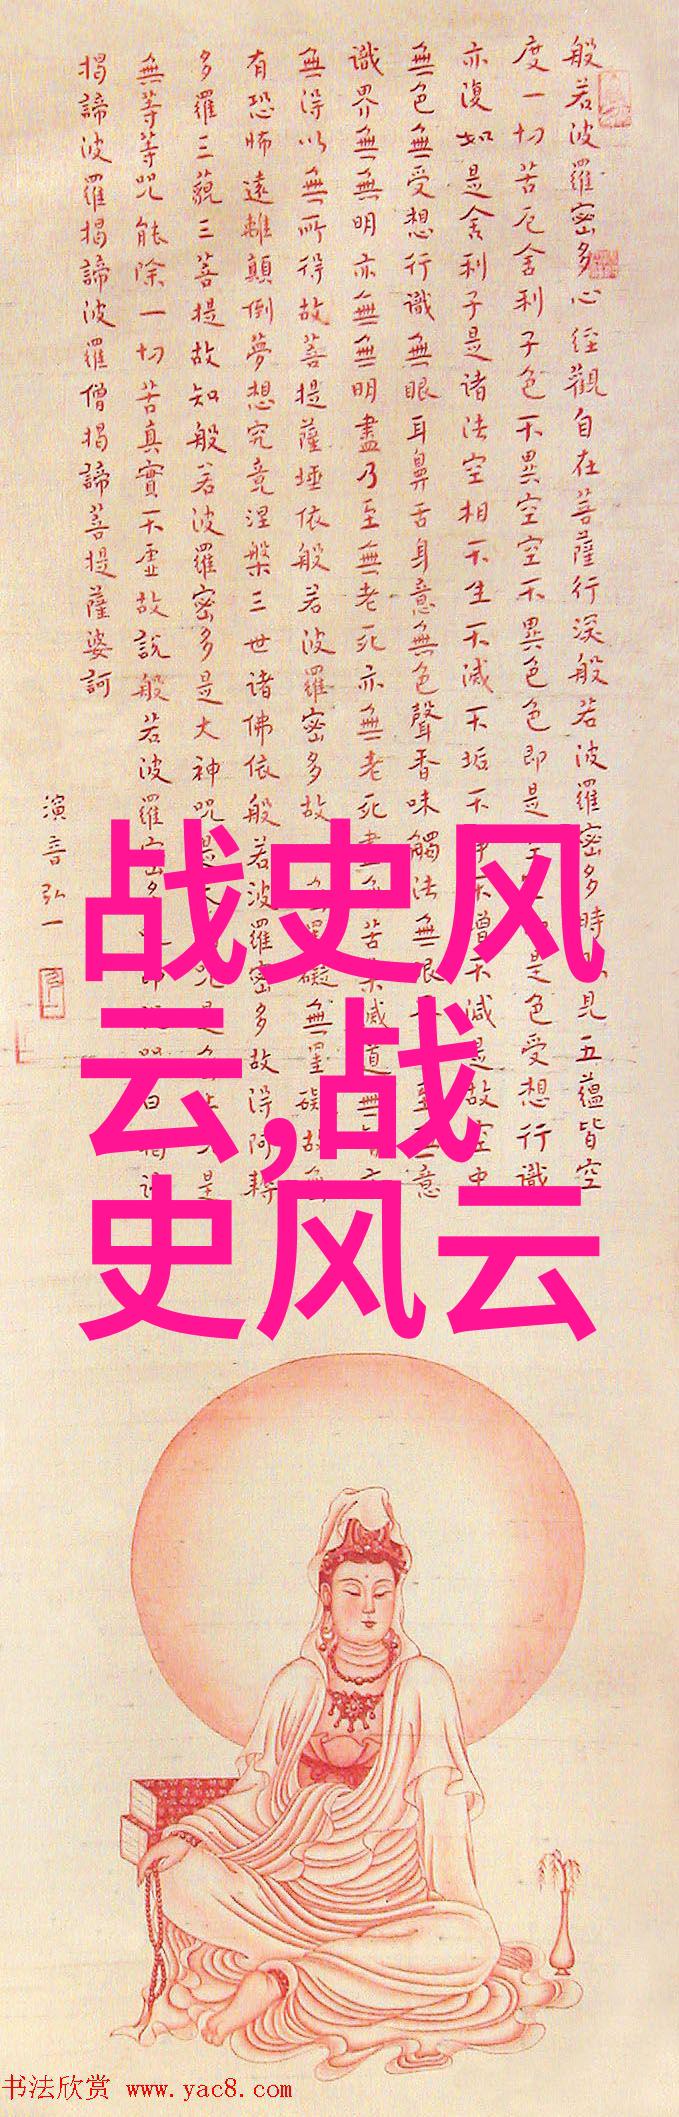 般若波羅密多心经觀自在菩薩行深般若波羅密多時 見五蕴皆空
度一切苦厄舍利子色不異空空不異色色即是 是色受想行識
亦復如是舍利子是诸法空相不生不滅不垢不 不增不减是故空中
無色無受想行識無眼耳鼻舌身意無色聲香味觸法無眼 意
識界無無明亦無無明盡乃至無老死亦無老死 苦 滅道無
無得以無所得故菩提薩埵依般若波羅密多故 礙無罣礙故無
有恐怖遠離顛倒夢想究竟涅槃三世诸佛依般若波羅密多故得阿耨
多羅三藐三菩提故知般若波羅密多是大神咒是 咒是 是
無等等咒能除一切苦真實不虚故説般若波羅密多 曰
揭諦波羅揭諦波羅僧揭諦菩提薩婆訶
演音弘一
战史风
云,战
史风云
书法欣赏 www.yac8.com